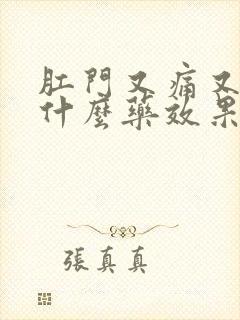 肛門又痛又
什麼藥效果
張真真